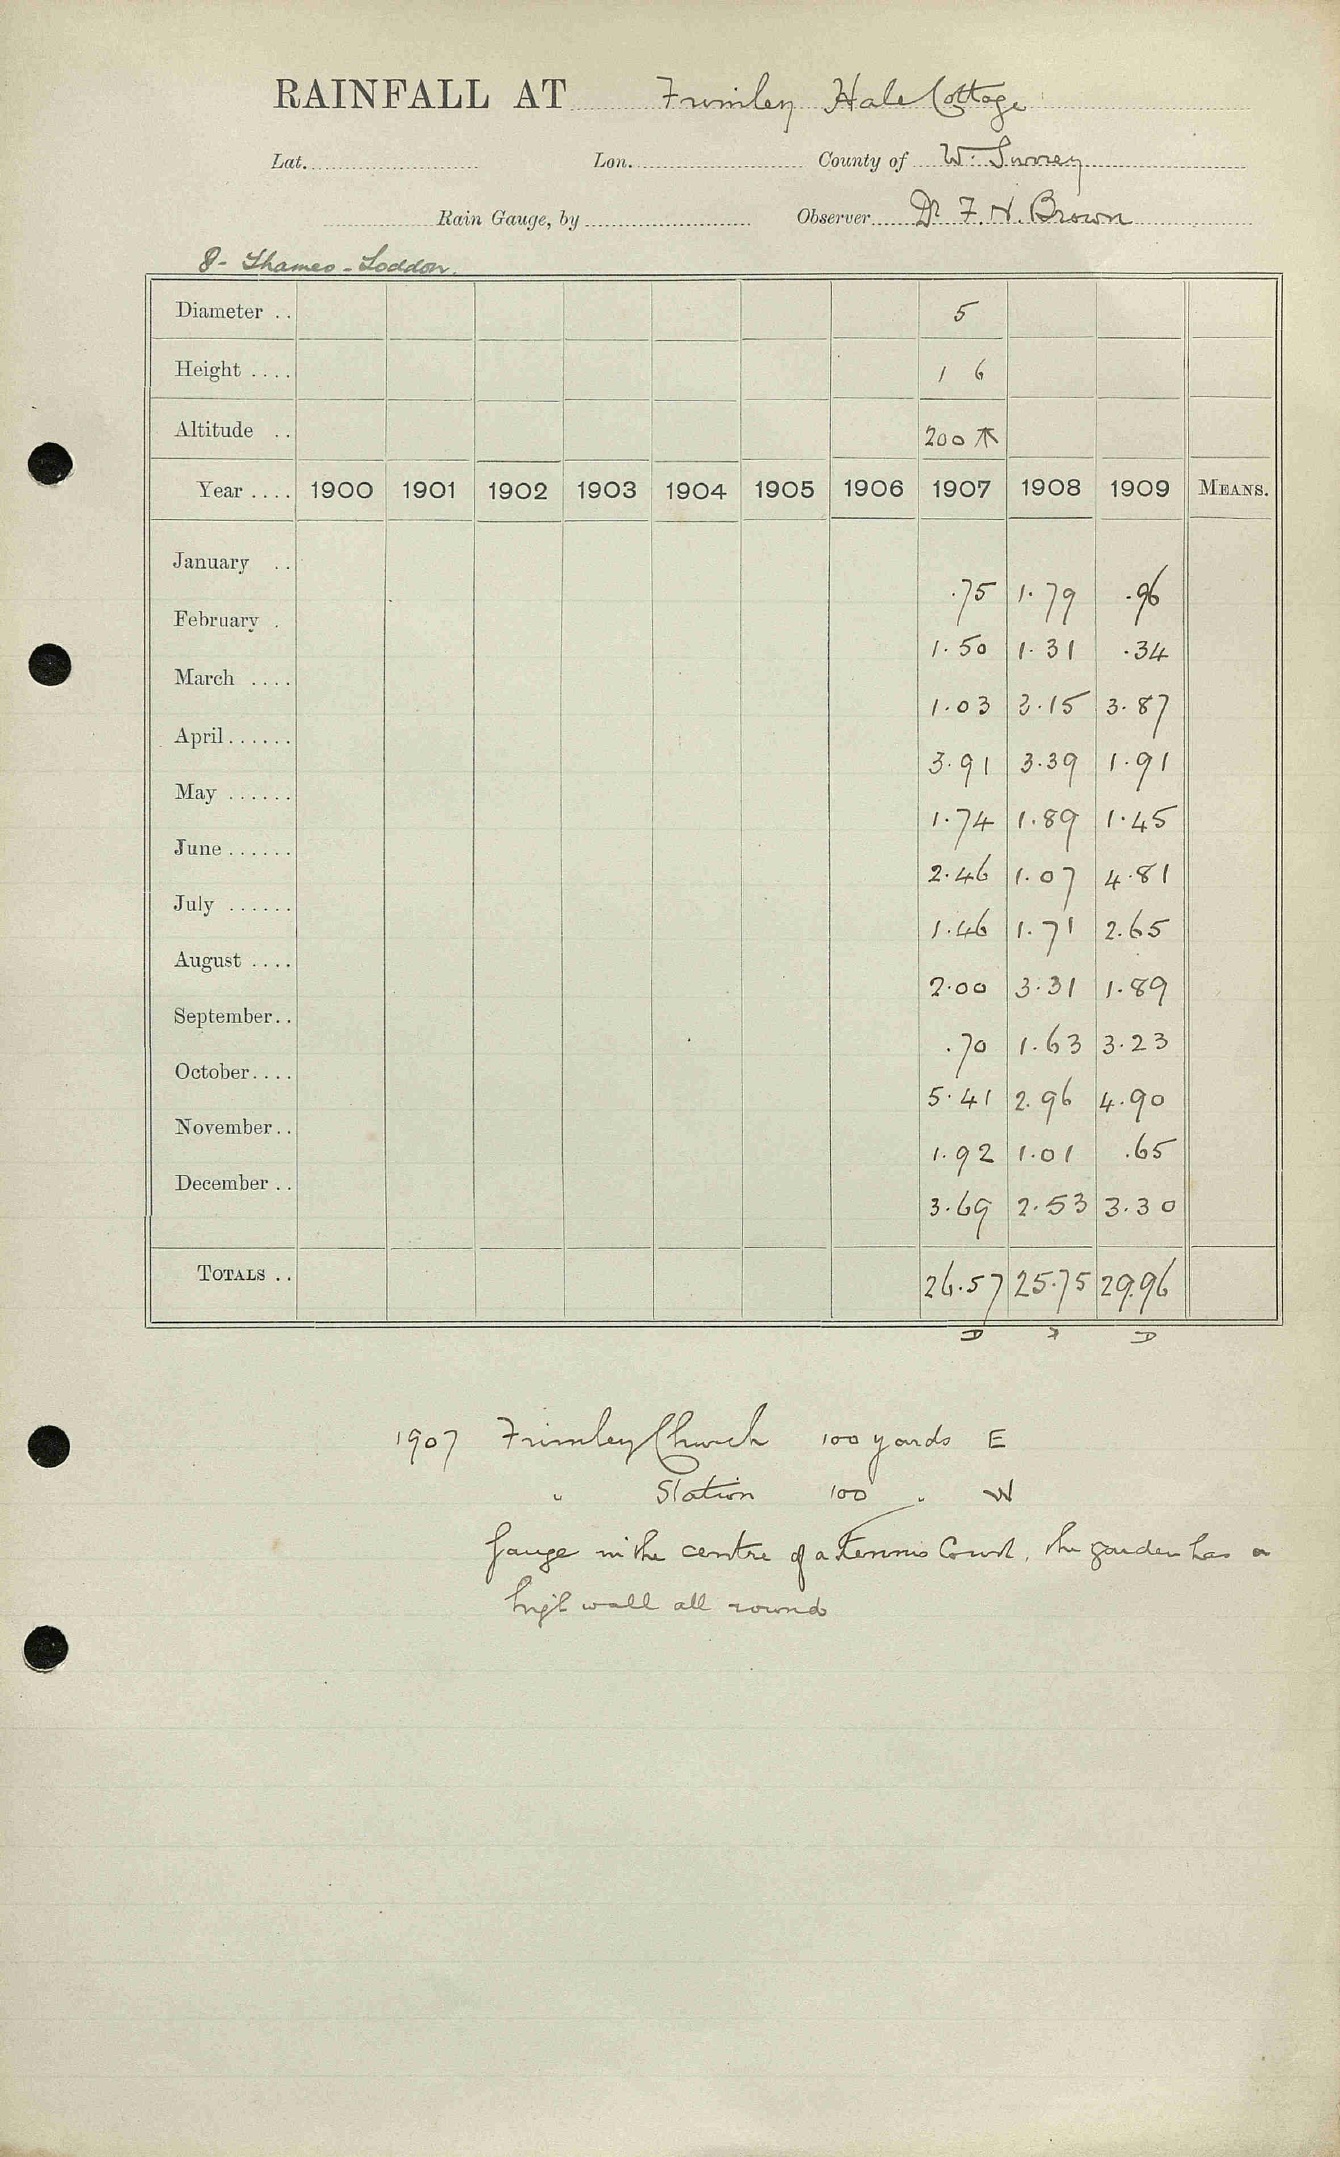 RAINFALL AT Frimley Hale Cottage
Lat. Lon. County of W. Surrey
Rain Gauge, by Observer Dr F. H. Brown
8- Thames - Loddon.
Diameter .. 5
Height .... 1 6
Altitude .. 200
Year .... 1900 1901 1902 1903 1904 1905 1906 1907 1908 1909 MEANS.
January .. .75 1.79 .96
February . 1.50 1.31 .34
March .... 1.03 3.15 3.87
April...... 3.91 3.39 1.91
May ...... 1.74 1.89 1.45
June ...... 2.46 1.07 4.81
July ...... 1.46 1.71 2.65
August .... 2.00 3.31 1.89
September.. .70 1.63 3.23
October.... 5.41 2.96 4.90
November.. 1.92 1.01 .65
December .. 3.69 2.53 3.30
TOTALS .. 26.57 25.75 29.96
1907 Frimley Church 100 yards E
" Station 100 " W
Gauge in the centre of a Tennis Court, the garden has a
high wall all round